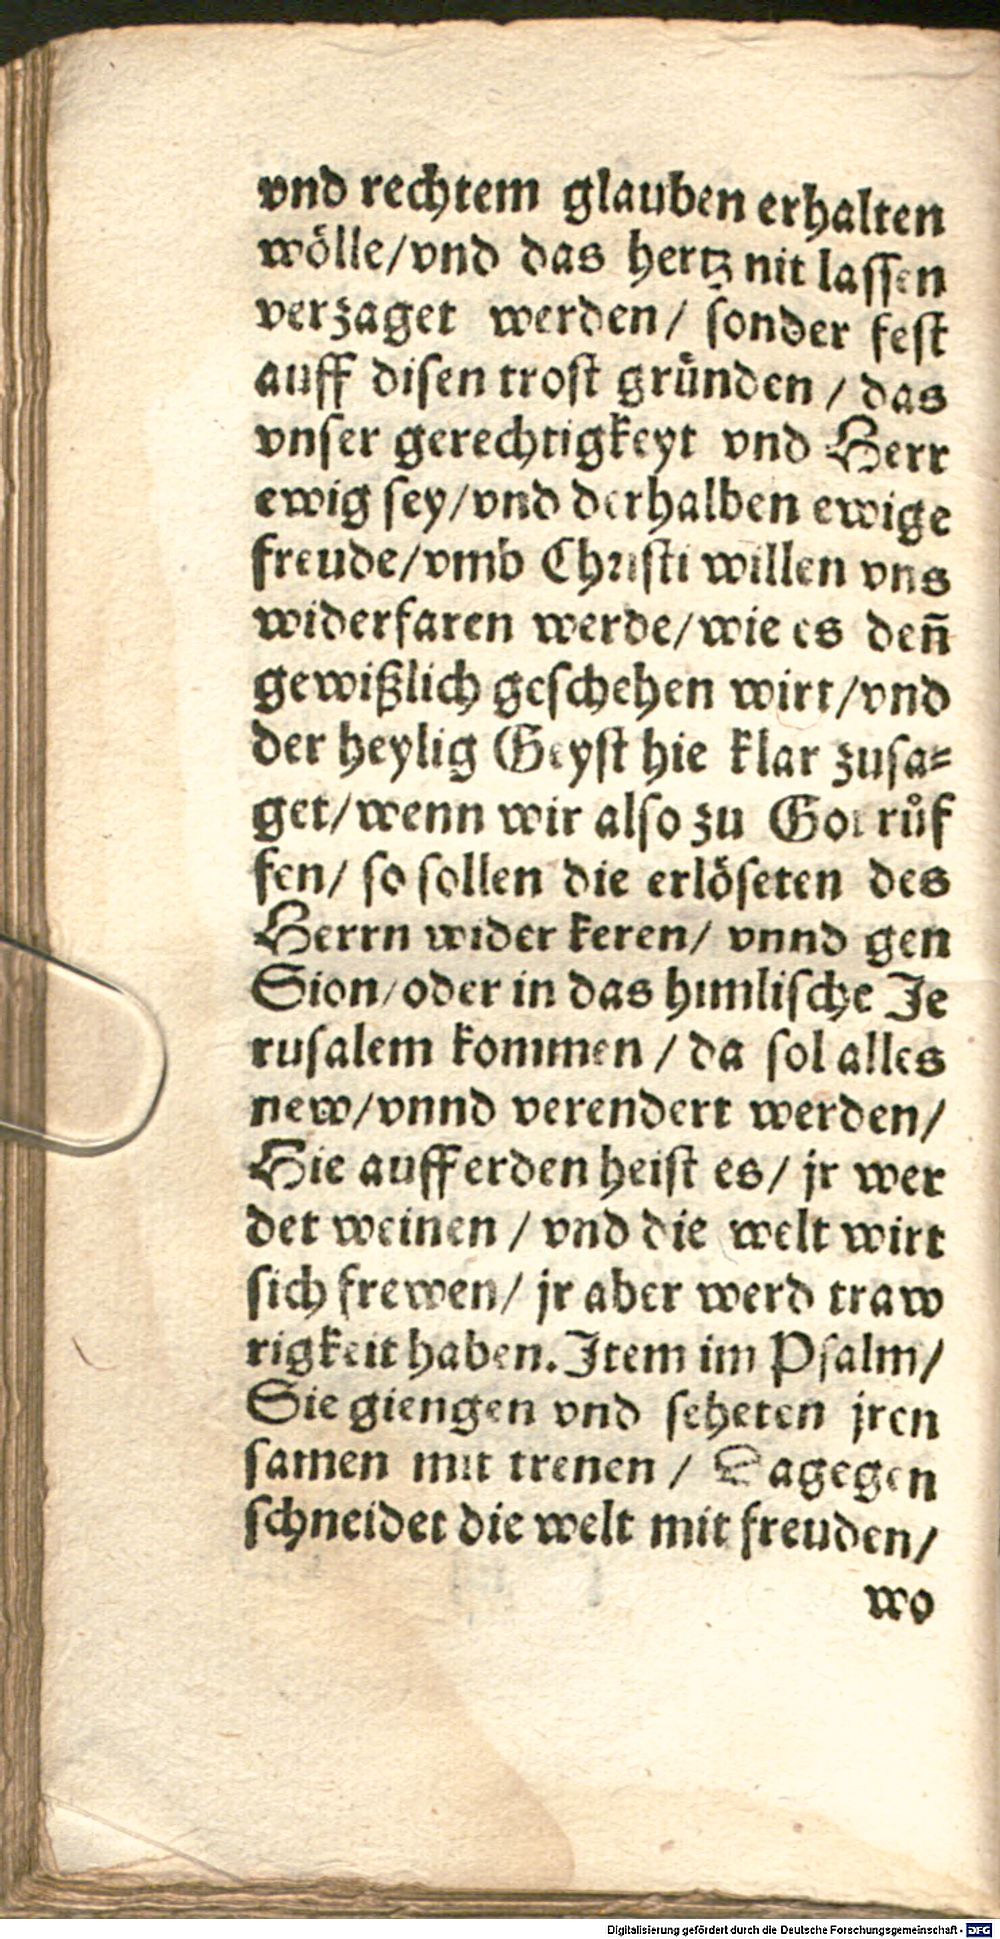 vnd rechtem glauben erhalten
wölle/vnd das hertz nit lassen
verzaget werden/ sonder fest
auff disen trost gründen / das
vnser gerechtigkeyt vnd Herr
ewig sey/vnd derhalben ewige
freude/vmb Christi willen vns
widerfaren werde/wie es deñ
gewißlich geschehen wirt/vnd
der heylig Geyst hie klar zusa=
get/wenn wir also zu Got růf
fen/ so sollen die erlöseten des
Herrn wider keren/ vnnd gen
Sion/oder in das himlische Je
rusalem kommen / da sol alles
new/vnnd verendert werden/
Hie auff erden heist es/ jr wer
det weinen / vnd die welt wirt
sich frewen/ jr aber werd traw
rigkeit haben. Item im Psalm/
Sie giengen vnd seheten jren
samen mit trenen / Dagegen
schneidet die welt mit freuden/
wo
Digitalisierung gefördert durch die Deutsche Forschungsgemeinschaft - DFG